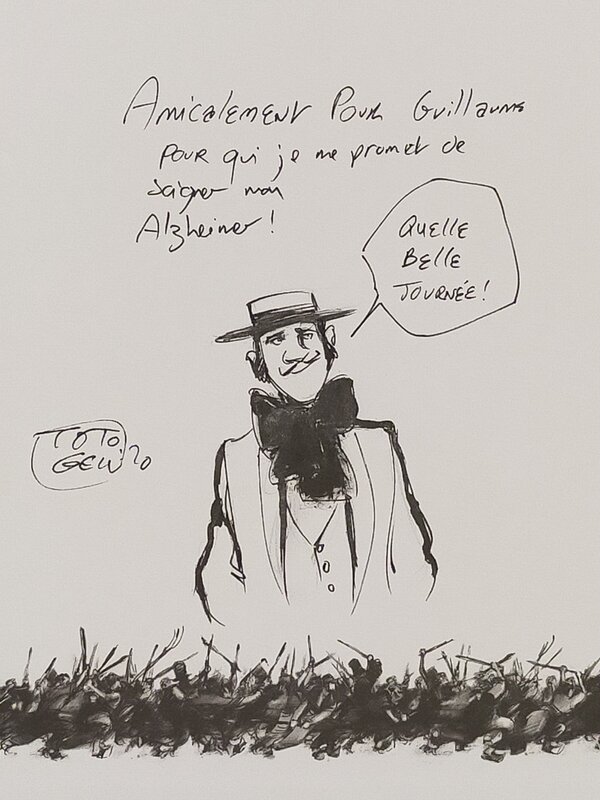 Amicalement Pour Guillaume
Pour qui je me promet de
soigner mon
Alzheimer !
QUELLE
BELLE
JOURNÉE !
TOTO